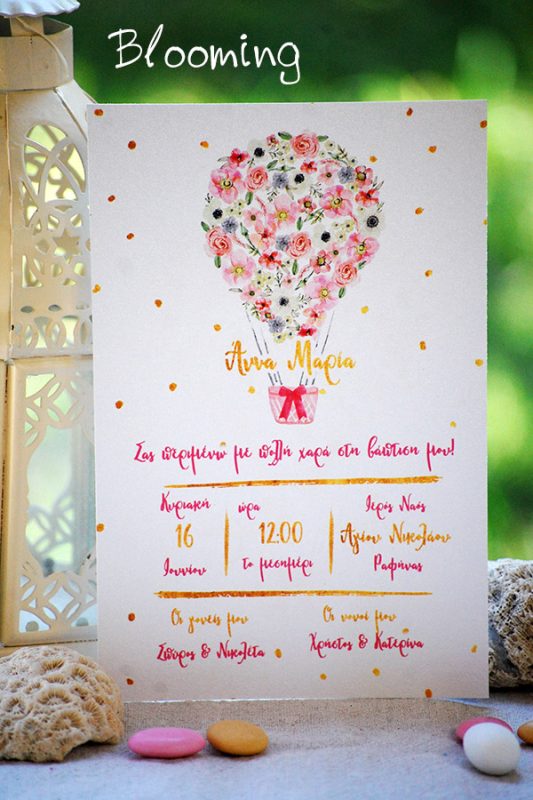 Blooming
Άννα Μαρία
Σας περιμένω με πολλή χαρά στη βάπτιση μου!
Κυριακή
16
Ιουνίου
ώρα
12:00
το μεσημέρι
Ιερός Ναός
Αγίου Νικολάου
Ραφήνας
Οι γονείς μου
Σπύρος & Νικολέτα
Οι νονοί μου
Χρήστος & Κατερίνα